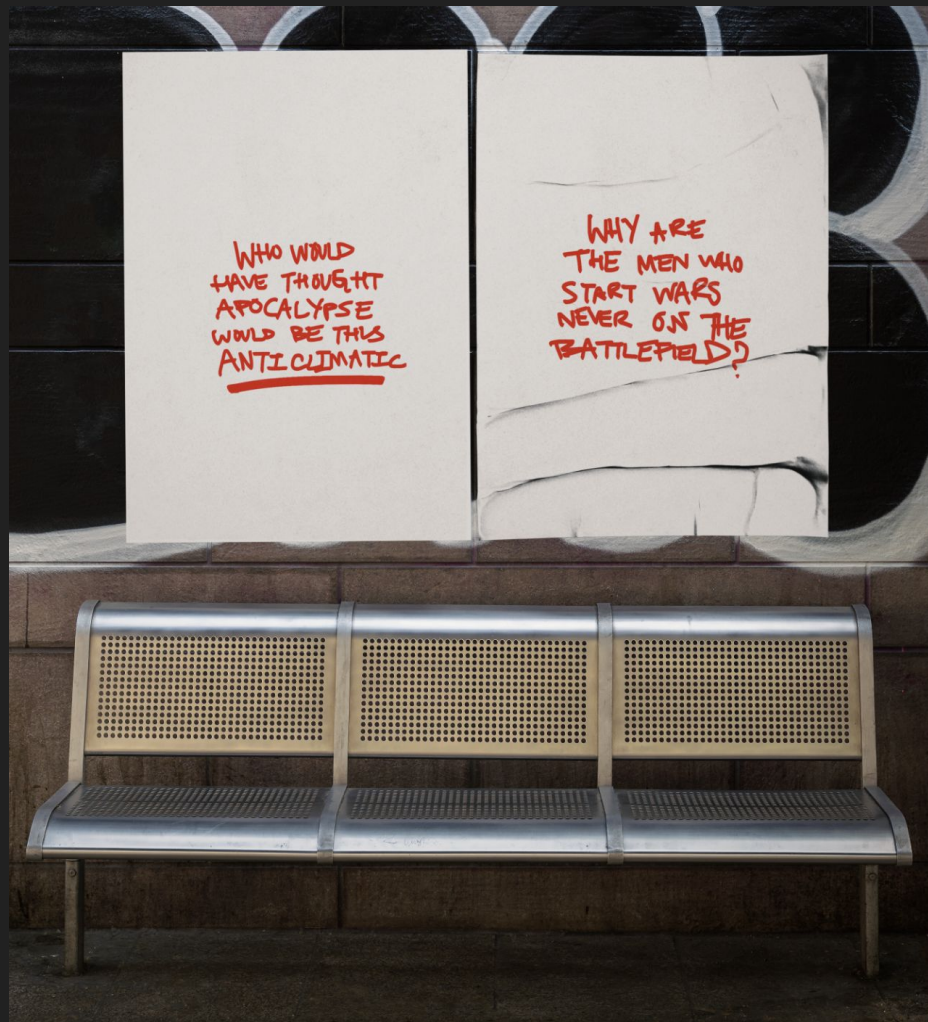 WHO WOULD
HAVE THOUGHT
APOCALYPSE
WOULD BE THIS
ANTICLIMATIC
WHY ARE
THE MEN WHO
START WARS
NEVER ON THE
BATTLEFIELD?